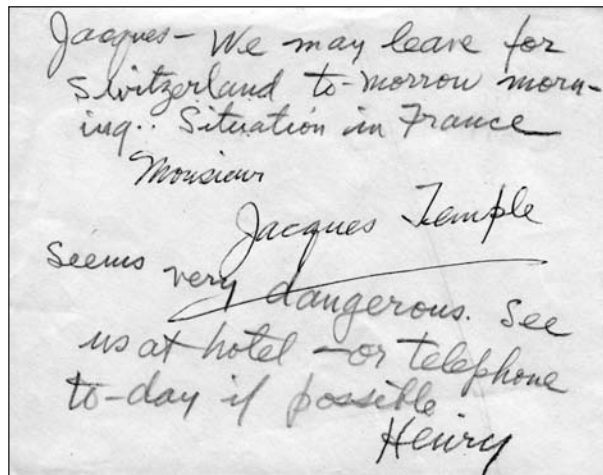 Jacques – We may leave for
Switzerland to-morrow morn-
ing.. Situation in France
Monsieur
Jacques Temple
seems very dangerous. See
us at hotel – or telephone
to-day if possible
Henry